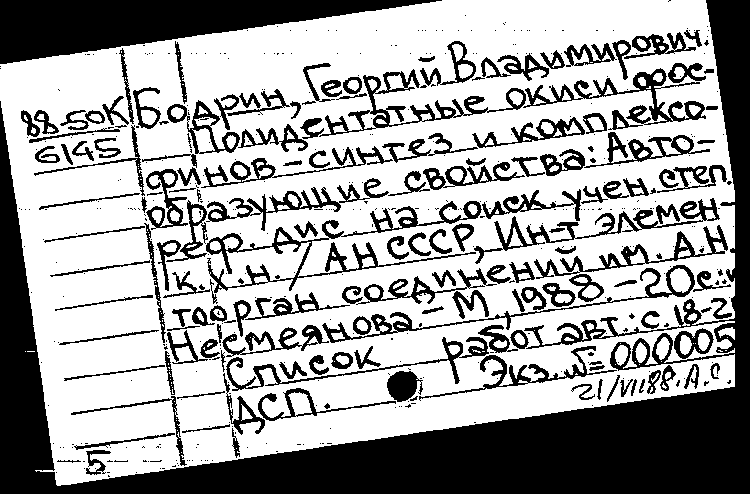 88-50К
6145
Бодрин, Георгий Владимирович.
Полидентатные окиси фос-
финов - синтез и комплексо-
образующие свойства: Авто-
реф. дис. на соиск. учен. степ.
к.х.н. / АН СССР, Ин-т элемен-
тоорган. соединений им. А.Н.
Несмеянова. - М., 1988. - 20с.:
Список работ авт.: с. 18-2
ДСП. Экз. №=000005
21/VII88. А.С.
5